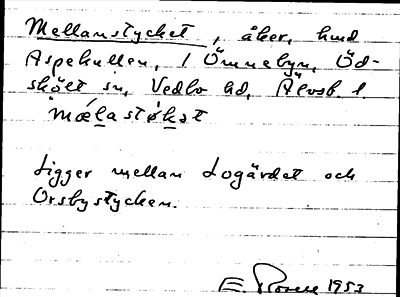 Mellanstycket, åker, hmd
Aspekullen, 1 Ömnebyn, Öd-
skölt sn, Vedbo hd, Älvsb. l.
Ligger mellan Logärdet och
Orsbystycken.
E. 1953